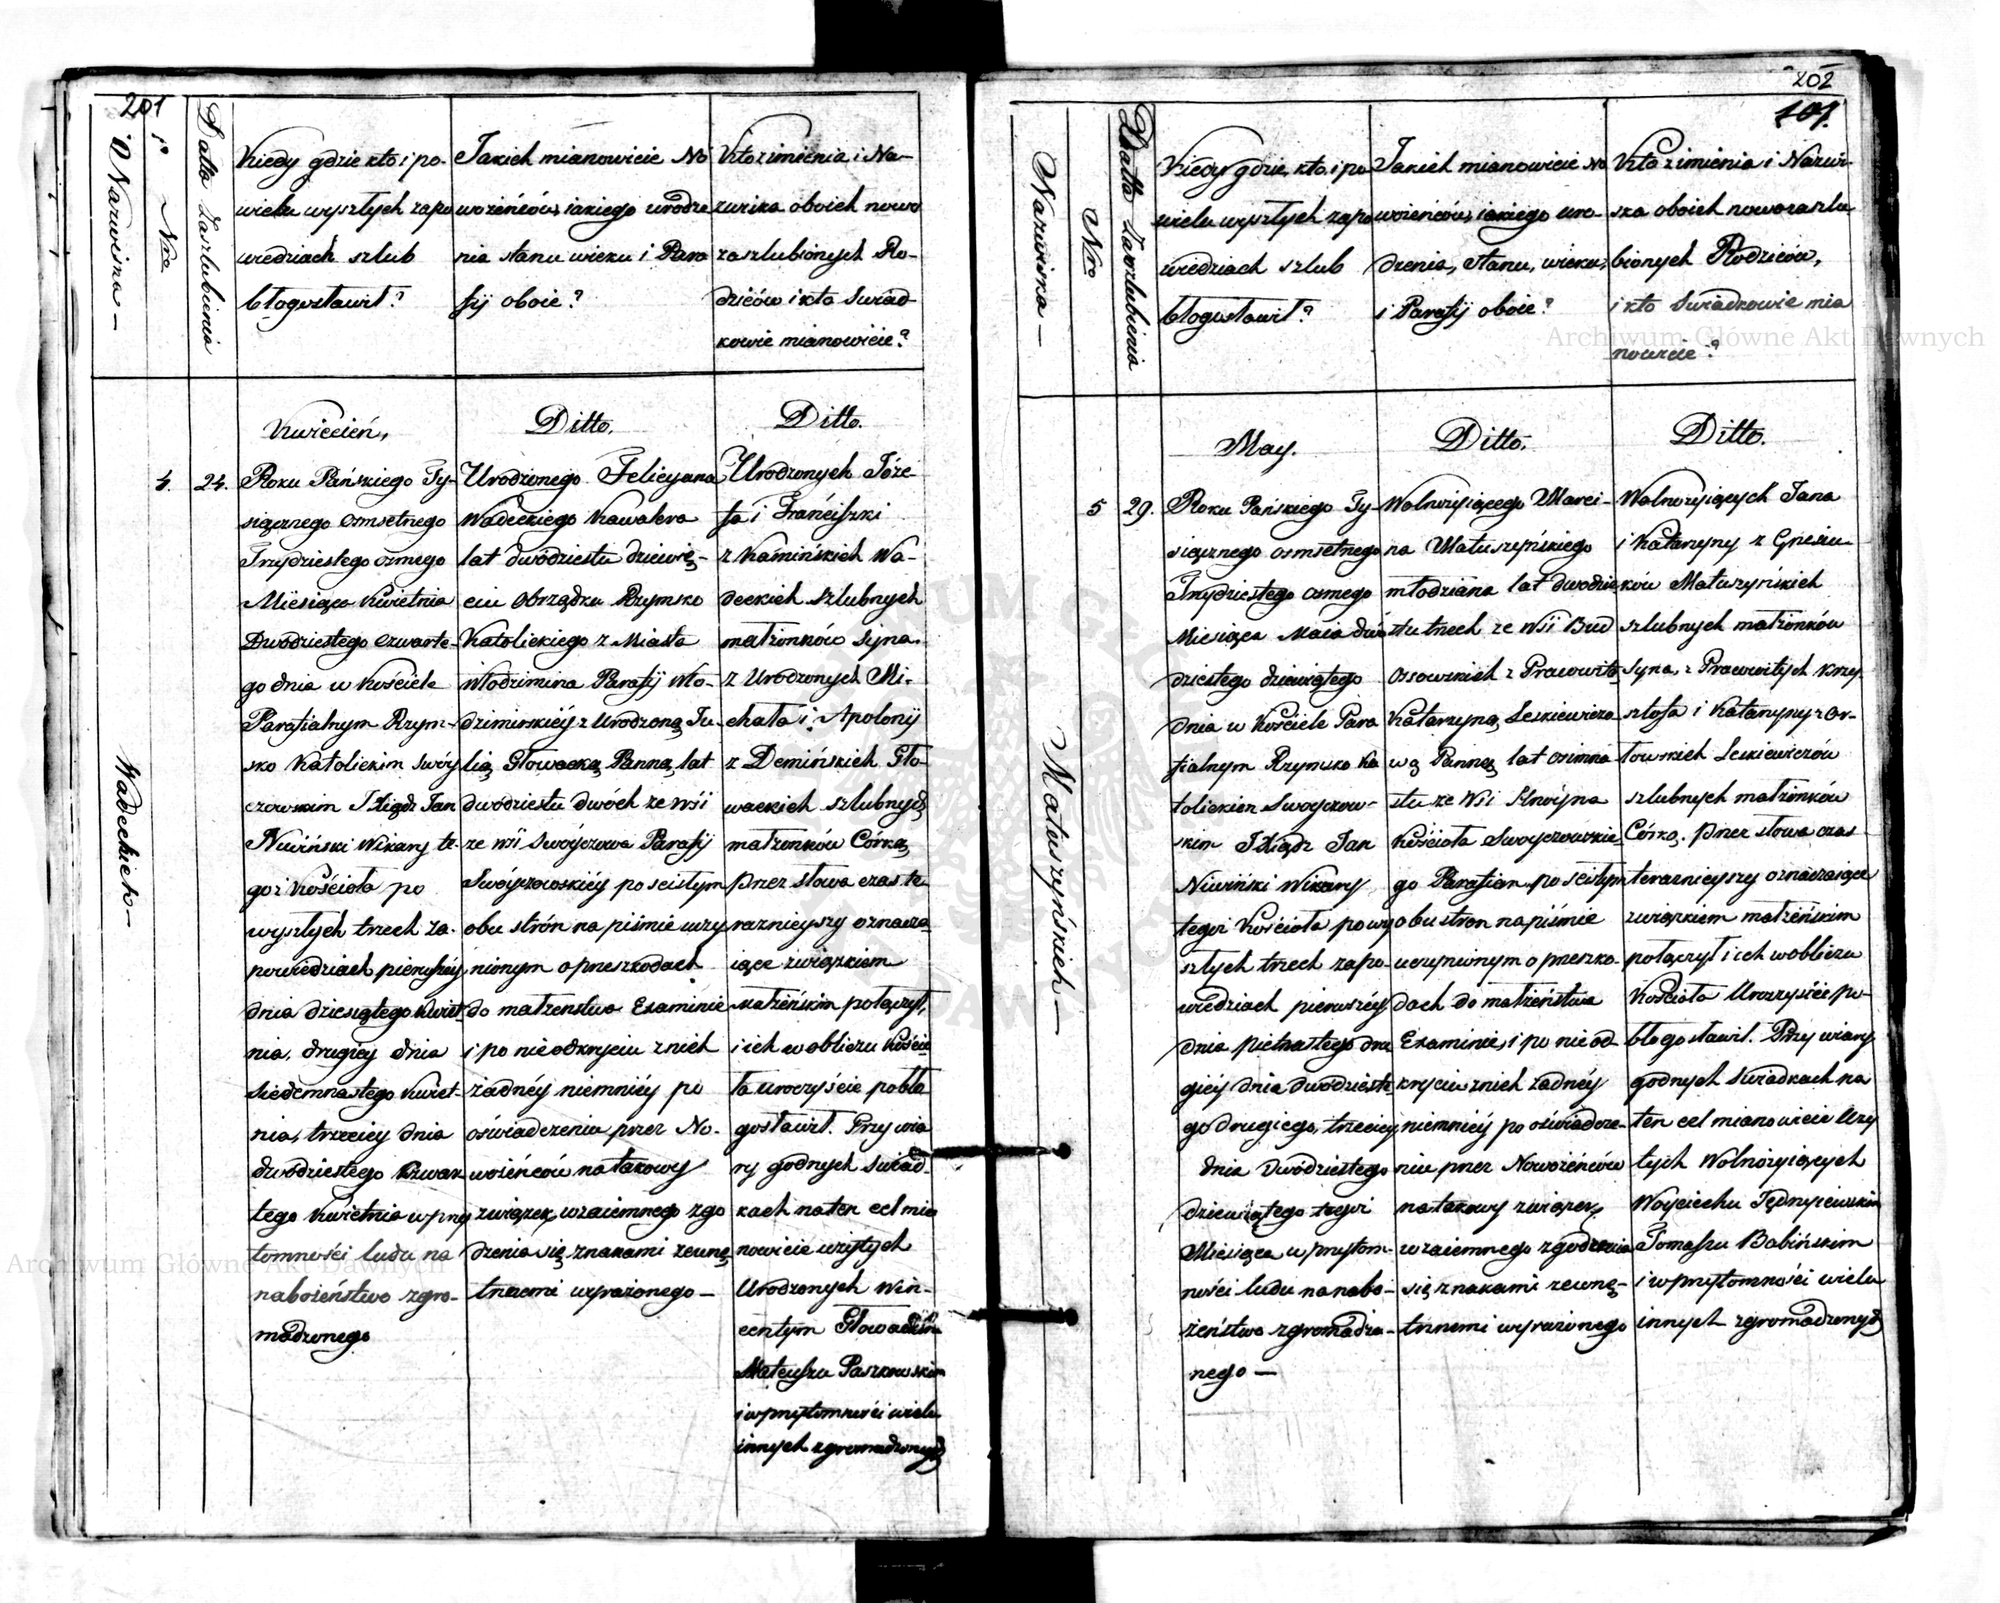 201
Nazwiska —
Nro
Datta Zaslubienia
Kiedy gdzie kto i po
wielu wyszłych zapo
wiedziach szlub
błogosławił?
Jakich mianowicie No
wożeńców, iakiego urodze
nia stanu wieku i Para
fij oboie?
Kto z imienia i Na-
zwiska oboich nowo
zaszlubionych Ro-
dziców i kto Swiad
kowie mianowicie?
Wadeckich —
4.
24.
Kwiecień,
Roku Pańskiego Ty-
siącznego osmsetnego
Trzydziestego osmego
Miesiąca Kwietnia
Dwódziestego czwarte-
go dnia w Kościele
Parafialnym Rzym-
sko Katolickim Swóy
czowskim JXiądz Jan
Niwiński Wikary te-
goż Kościoła po
wyszłych trzech za-
powiedziach pierwszéy
dnia dziesiątego Kwiet-
nia, drugiey dnia
siedemnastego Kwiet-
nia, trzeciey dnia
dwódziestego czwar
tego Kwietnia w przy
tomności ludu na
nabożeństwo zgro-
madzonego
Ditto.
Urodzonego Felicyana
Wadeckiego Kawalera
lat dwódziestu dziewię-
ciu Obrządku Rzymsko
Katolickiego z Miasta
Włodzimirza Parafij Wło-
dzimirskiéy z Urodzoną Ju-
lią Głowacką Panną, lat
dwódziestu dwóch ze wśi
ze wśi Swóyczowa Parafij
Swóyczowskiéy po scisłym
obu strón na piśmie uczy
nionym o przeszkodach
do matżenstwa Examinie
i po nieodkryciu z nich
żadnéy niemniéy po
oświadczeniu przez No-
wożeńców na takowy
związek wzaiemnego zgo
dzenia się znakami zewnę
trznemi wyrażonego —
Ditto.
Urodzonych Józe-
fa i Franciszki
z Kamińskich Wa-
deckich szlubnych
matżonków Syna.
z Urodzonych Mi-
chała i Apolonij
z Demińskich Gło-
wackich szlubnych
matżonków Córką,
przez słowa czas te
raznieyszy oznacza
iące związkiem
Matżeńskim połączył,
i ich w obliczu Kościo
ła uroczyście pobło
gosławił. Przy wia
ry godnych Swiad-
kach na ten cel mia
nowicie użytych
Urodzonych Win-
centym Głowackim
Mateuszu Paszkowskim
i w przytomności wielu
innych zgromadzonych
202
101.
Nazwiska —
Nro
Datta Zaszlubienia
Kiedy gdzie, kto i po
wielu wyszłych zapo
wiedziach szlub
błogosławił?
Jakich mianowicie No
wożeńców, iakiego uro-
dzenia, stanu, wieku,
i Parafij oboie?
Kto z imienia i Nazwi-
ska oboich nowozaszlu
bionych Rodziców,
i kto Swiadkowie mia
nowicie?
Matuszyńskich —
5
29.
May.
Roku Pańskiego Ty-
siącznego osmsetnego
Trzydziestego osmego
Miesiąca Maia dwó
dziestego dziewiątego
dnia w Kościele Para
fialnym Rzymsko Ka
tolickim Swoyczow-
skim JXiądz Jan
Niwiński Wikary
tegoż Kościoła po wy
szłych trzech zapo-
wiedziach pierwszéy
dnia piętnastego dru
giéy dnia dwódzieste
go drugiego, trzeciey
dnia dwódziestego
dziewiątego tegoż
Miesiąca w przytom-
ności ludu na nabo-
żeństwo zgromadzo-
nego —
Ditto.
Wolnożyiącego Marci-
na Matuszyńskiego
młodziana lat dwodzie
stu trzech ze Wśi Bud
Ossowskich z Prawowitą
Katarzyną Leskiewiczo
wą Panną, lat osmna
stu ze Wśi
Kościoła Swoyczowskie
go Parafian. po scisłym
obu stron na piśmie
uczynionym o przeszko-
dach do matżeństwa
Examinie, i po nie od-
kryciu z nich żadnéy
niemniéy po oświadcze-
niu przez Nowożeńców
na takowy związek
wzaiemnego zgodzenia
się znakami zewnę-
trznemi wyrażonego
Ditto.
Wolnożyiących Jana
i Katarzyny z Gnesiu
ków Matuszyńskich
szlubnych matżonków
Syna, z Prawowitych Krzy
sztofa i Katarzyny z Or-
łowskich Leskiewiczów
szlubnych matżonków
Córką. przez słowa czas
teraznieyszy oznaczaiące
związkiem matżeńskim
połączył i ich w obliczu
Kościoła Uroczyście po-
błogosławił. Przy wiary
godnych Swiadkach na
ten cel mianowicie Uży
tych Wolnożyiących
Woyciechu
Tomaszu Babińskim
i w przytomności wielu
innych zgromadzonych
Archiwum Główne Akt Dawnych
Archiwum Główne Akt Dawnych